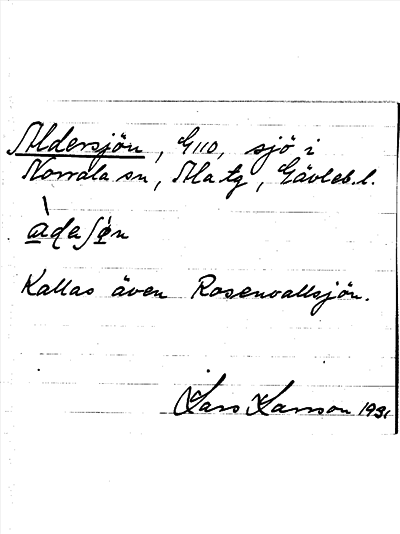 Aldersjön, G110, sjö i
Norrala sn, Ala tg, Gävleb. l.
àdaʃø̀n
Kallas även Rosenvallsjön.
Lars Larsson 1931